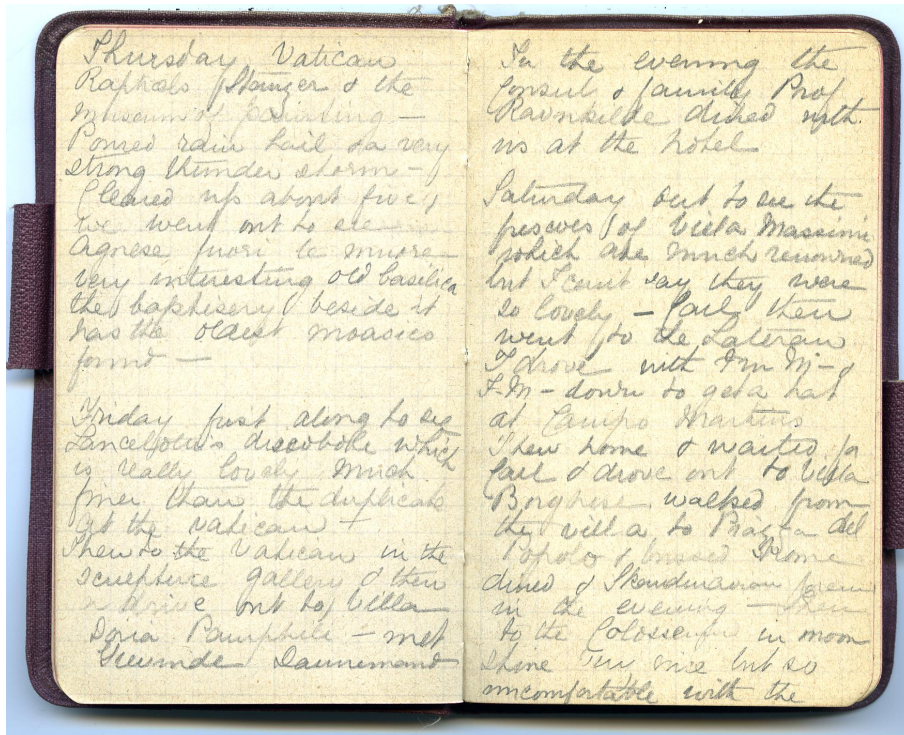 Thursday Vatican
Raphaels Stanzer & the
Museum of Painting —
Poured rain hail & a very
strong thunder storm —
Cleared up about five &
we went out to see
Agnese fuori le mure
very interesting old basilica
the baptisery beside it
has the oldest moasics
found —
Friday first along to see
Lancellotti's discobole which
is really lovely much
finer than the duplicate
at the Vatican —
Then to the Vatican in the
sculpture gallery & then
a drive out to Villa
Doria Pamphili — met
In the evening the
Consul & family Prof
Ravnkilde dined with
us at the hotel
Saturday out to see the
frescoes of Villa Massimi
which are much renowned
but I can't say they were
so lovely — Carl then
went to the Lateran
I drove with &
F.M — down to get a hat
at Campo Martius
Then home & waited for
Carl & drove out to Villa
Borghese walked from
the villa to Piazza del
Popolo & bussed home
dined & Skandinavian
in the evening — Then
to the Colosseum in moon
shine very nice but so
uncomfortable with the